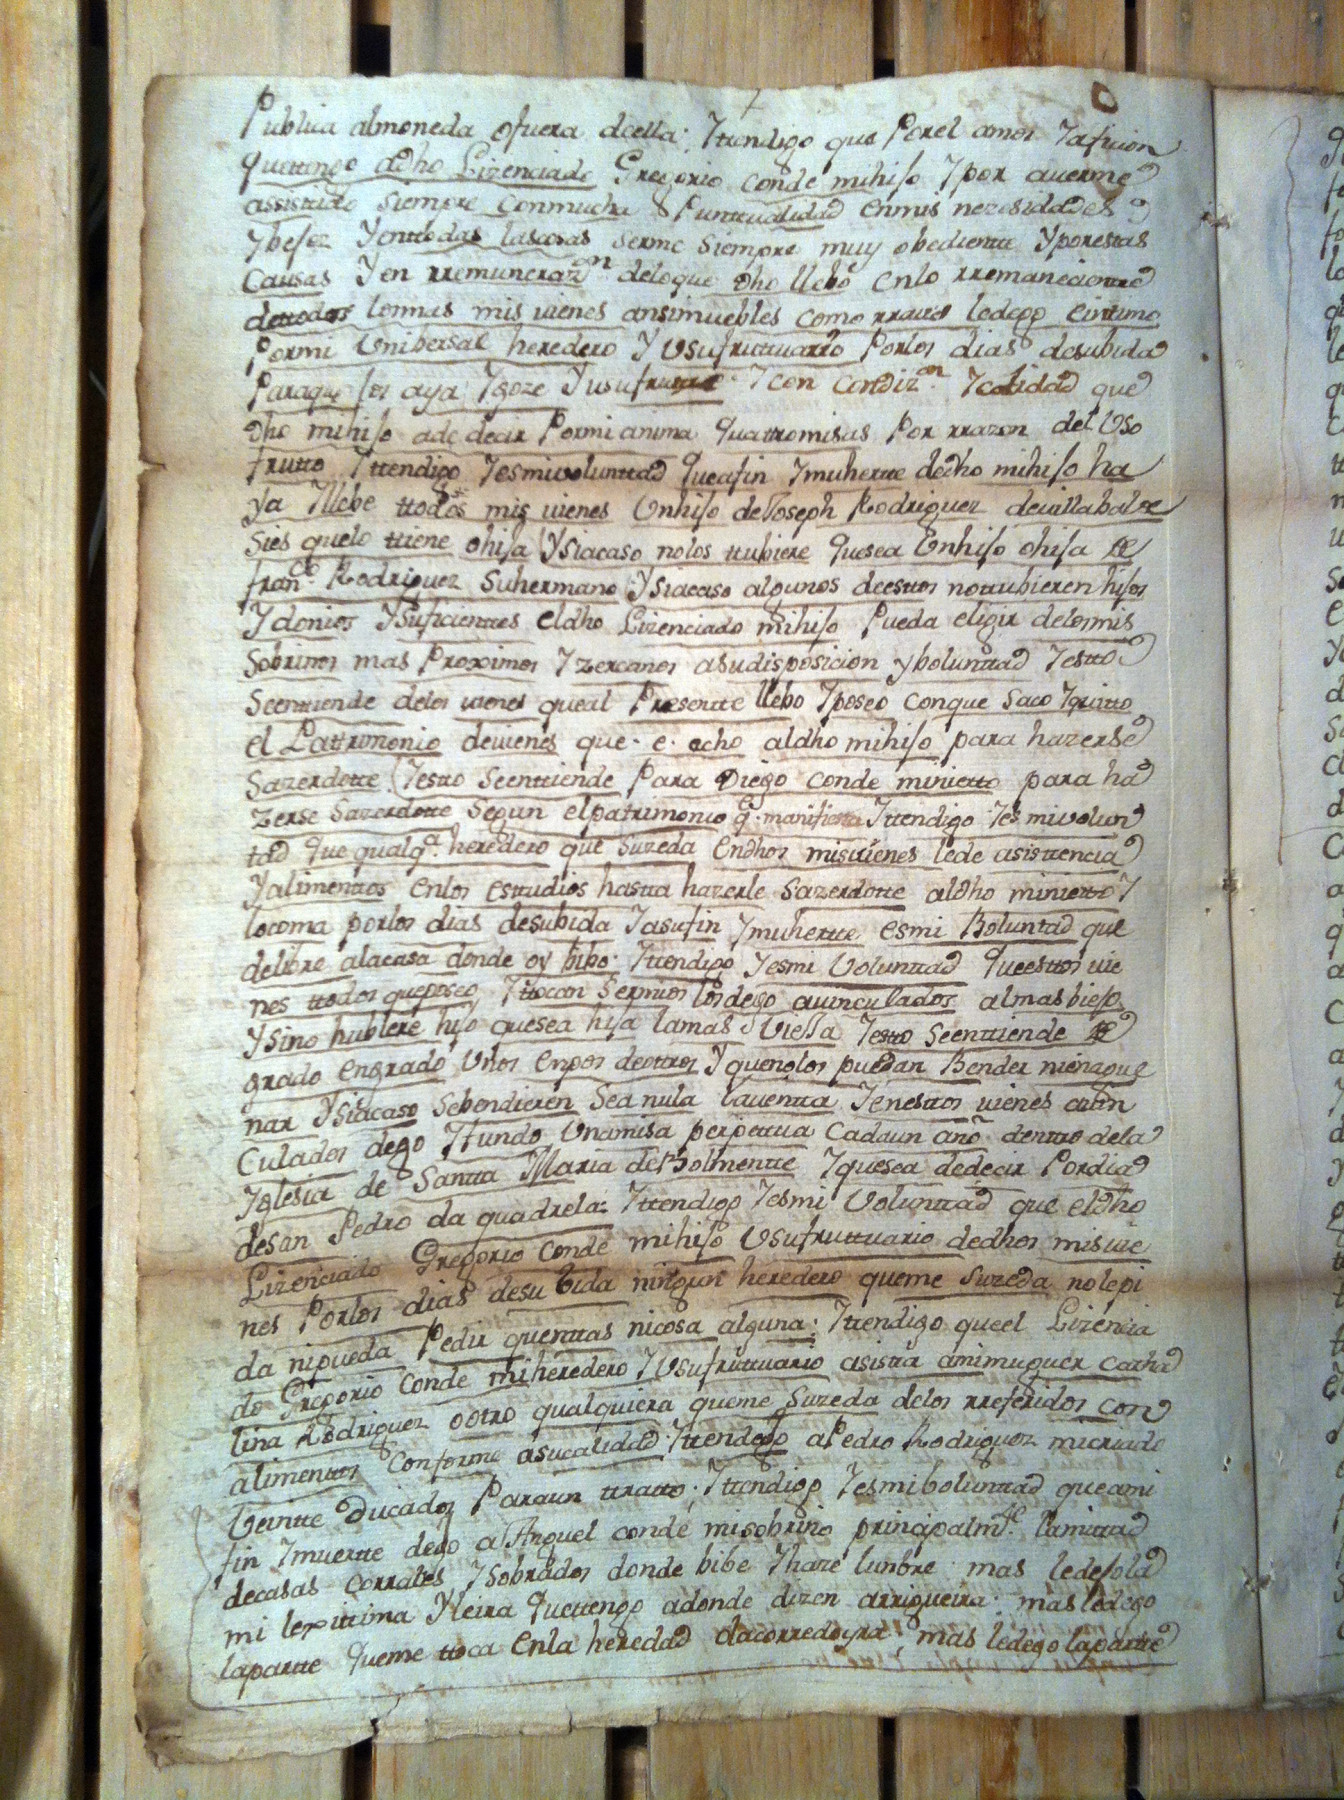 Publica almoneda ofuera della; Yttendigo que Porel amor Yaficion
quettengo adho Lizenciado Gregorio conde mihijo Ypor auerme
assistido siempre conmucha Punttualidad enmis nezesidades
Ybejez Yenttodas lascosas serme siempre muy obedientte Yporestas
causas Yen rremunerazon deloque dho llebo enlo rremanecientte
dettodos losmas mis uienes ansimuebles como rraices lodejo einstitu
Pormi Unibersal heredero Y Usufruttuario Porlos dias desubida
Paraque los aya Ygoze Yusufrutte. Y con condizon Ycalidad que
dho mihijo ade decir Pormi anima quattromisas Por rrazon del Uso
frutto Yttendigo Yesmivolunttad queafin Ymuhertte dedho mihijo ha
ya Yllebe ttodos mis uienes Unhijo deJoseph Rodriguez deuillabalve
sies quelo ttiene ohija Ysiacaso nolos ttubiere quesea Unhijo ohija de
franco Rodriguez suhermano Ysiacaso algunos deesttos nottubieren hijos
Ydonios Ysuficienttes eldho Lizenciado mihijo Pueda eligir delosmis
sobrinos mas Proximos Yzercanos asudisposicion yboluntad Yestto
seenttiende delos uienes queal Presentte llebo Yposeo conque saco Yquitto
el Pattrimonio deuienes que. e. echo aldho mihijo para hazerse
sazerdotte Yestto seenttiende Para Diego conde minietto para ha
zerse sazerdotte segun elpatrimonio q. manifiesta Yttendigo Yes mivolun
tad que qualqa. heredero que suzeda endhos misuienes lede asisttencia
Yalimenttos enlos esttudios hastta hazerle sazerdotte aldho minietto Y
locoma porlos dias desubida Yasufin Ymuhertte esmi Boluntad que
delibre alacasa donde oy bibo. Yttendigo Yesmi Voluntad queesttos uie
nes ttodos queposeo Yttocan sermios losdejo auinculados almasbiejo
Ysino hubiere hijo quesea hija lamas Vieja Yestto seenttiende de
grado engrado Unos enpos deottros Yquenolos puedan Bender nienajene
nar Ysiacaso sebendieren sea nula lauentta Yenesttos uienes auin
culados dejo Yfundo Unamisa perpettua cadaun año. denttro dela
Yglesia de Santta Maria deBolmentte Yquesea dedecir Pordia
desan Pedro da quadrela: Yttendigo Yesmi Voluntad que eldho
Lizenciado Gregorio conde mihijo Usufruttuario dedhos misuie
nes Porlos dias desubida ningun heredero queme suzeda nolepi
da nipueda Pedir quenttas nicosa alguna; Yttendigo queel Lizencia
do Gregorio conde miheredero Y Usufruttuario asista amimuguer catha
lina Rodriguez oottro qualquiera queme suzeda delos rreferidos con
alimenttos conforme asucalidad. Yttendejo aPedro Rodriguez micriado
Veintte Ducados Paraun ttratto; Yttendigo Yesmiboluntad queami
fin Ymuertte dejo aAnguel conde misobrino principalmte. lamittad
decasas corrales Ysobrados donde bibe Yhaze lunbre. mas ledejola
mi lexittima Yleira quettengo adonde dizen arrigueira. mas ledejo
lapartte queme ttoca enla heredad dacorredoyra; mas ledejo lapartte